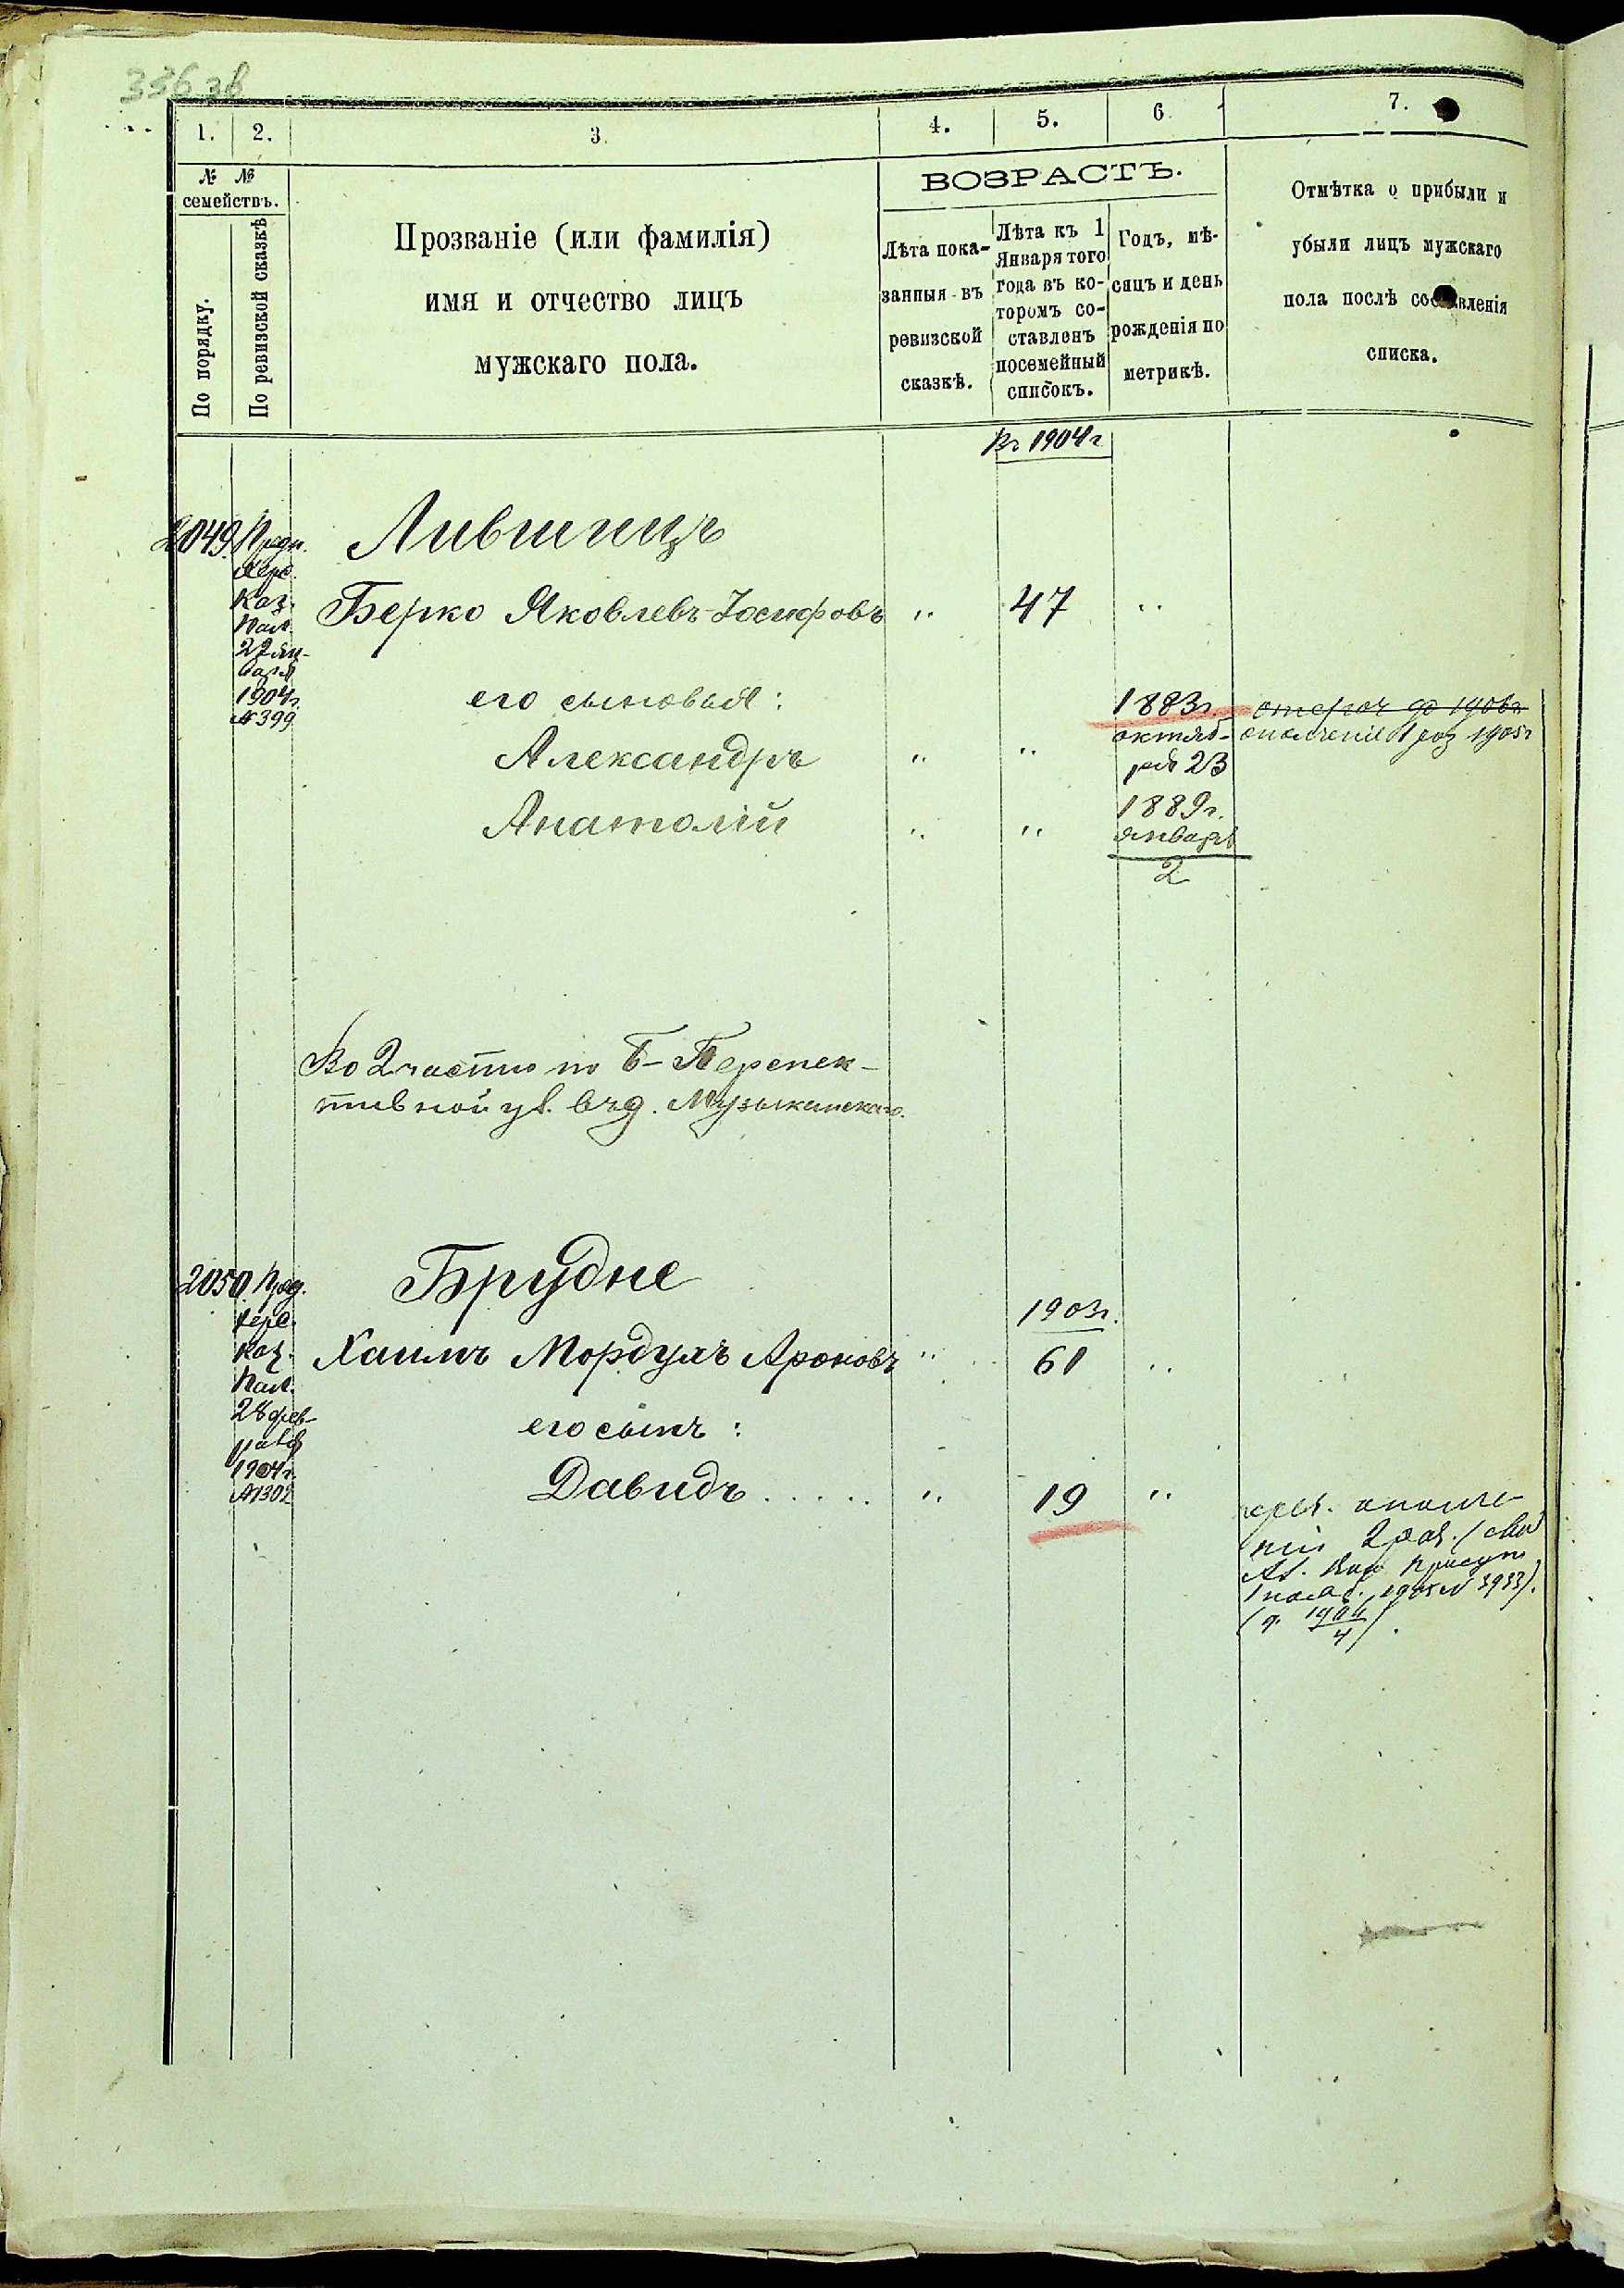 336 зв
1. 2. 3. 4. 5. 6. 7.
№ №
семействъ.
По порядку.
По ревизской сказкѣ
Прозваніе (или фамилія)
имя и отчество лицъ
мужскаго пола.
ВОЗРАСТЪ.
Лѣта пока-
занныя въ
ревизской
сказкѣ.
Лѣта къ 1
Января того
года въ ко-
торомъ со-
ставленъ
посемейный
списокъ.
Годъ, мѣ-
сяцъ и день
рожденія по
метрикѣ.
Отмѣтка о прибыли и
убыли лицъ мужскаго
пола послѣ составленія
списка.
Въ 1904 г
2049. Предп. Лившицъ
Херс.
Каз.
Пал.
22 ян-
варя
1904 г.
№ 399
Берко Яковлевъ-Іосифовъ " 47 "
его сыновья:
Александръ " " 1883 г.
октяб-
ря 23
отсроч до 1906 г
ополченіе 1 раз 1905 г
Анатолій " " 1889 г.
января
2
Во 2 части по Б-Перспек-
тивной ул. въ д. Музыканскаго.
2050 Пред. Брудне
Херс.
Каз.
Пал.
28 фев-
раля
1904 г.
№ 1302
1903 г.
Хаимъ Мордухъ Ароновъ " 61 "
его сынъ:
Давидъ . . . . . " 19 "
ополче-
нія 2 раз. (
At. Присут
1904
4